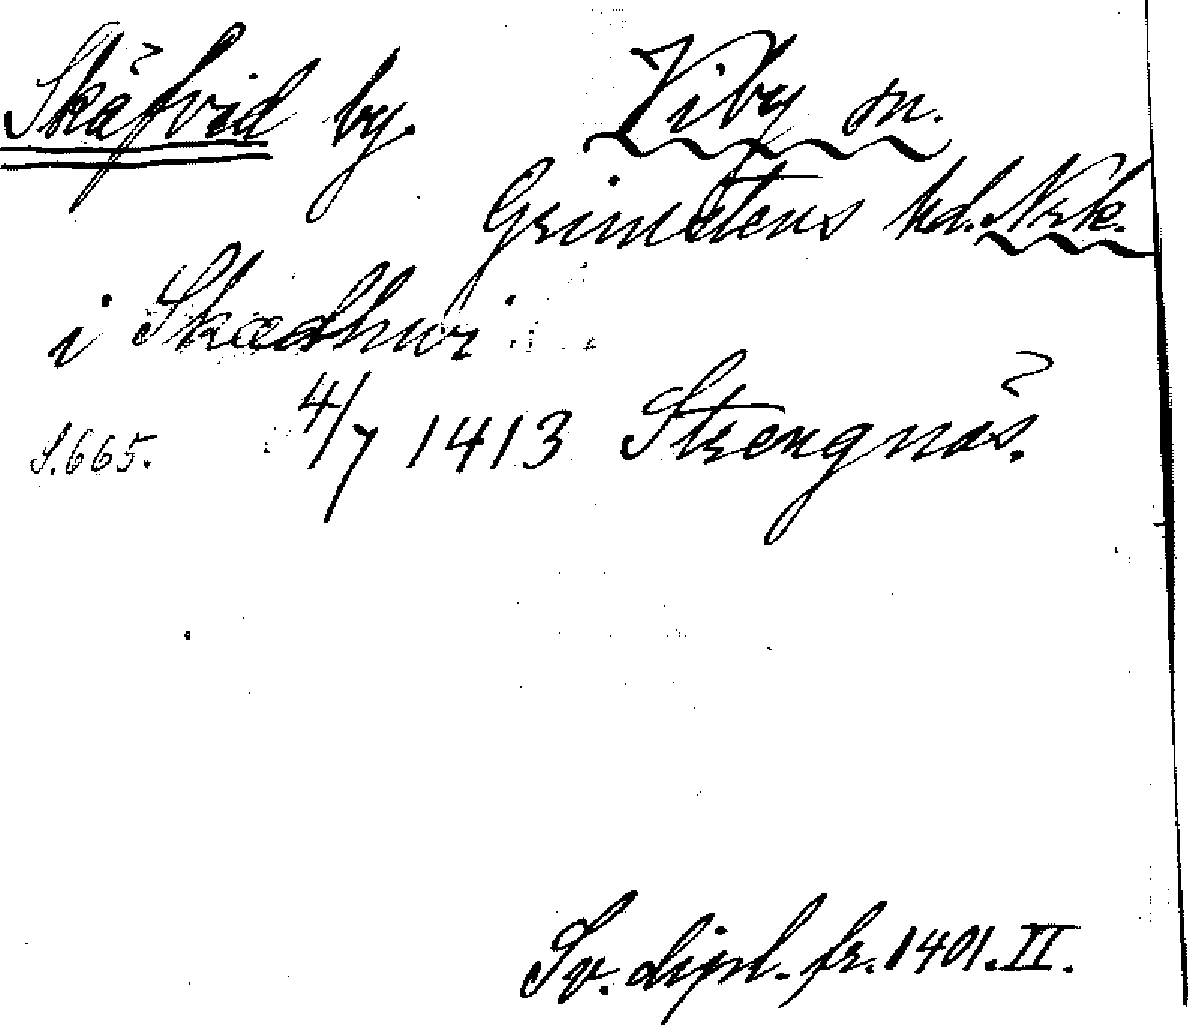 Skäfvid by. Viby sn.
Grimstens hd. Nrk.
i Skædhwi
S. 665. 4/7 1413 Strengnäs.
Sv. dipl. fr. 1401. II.